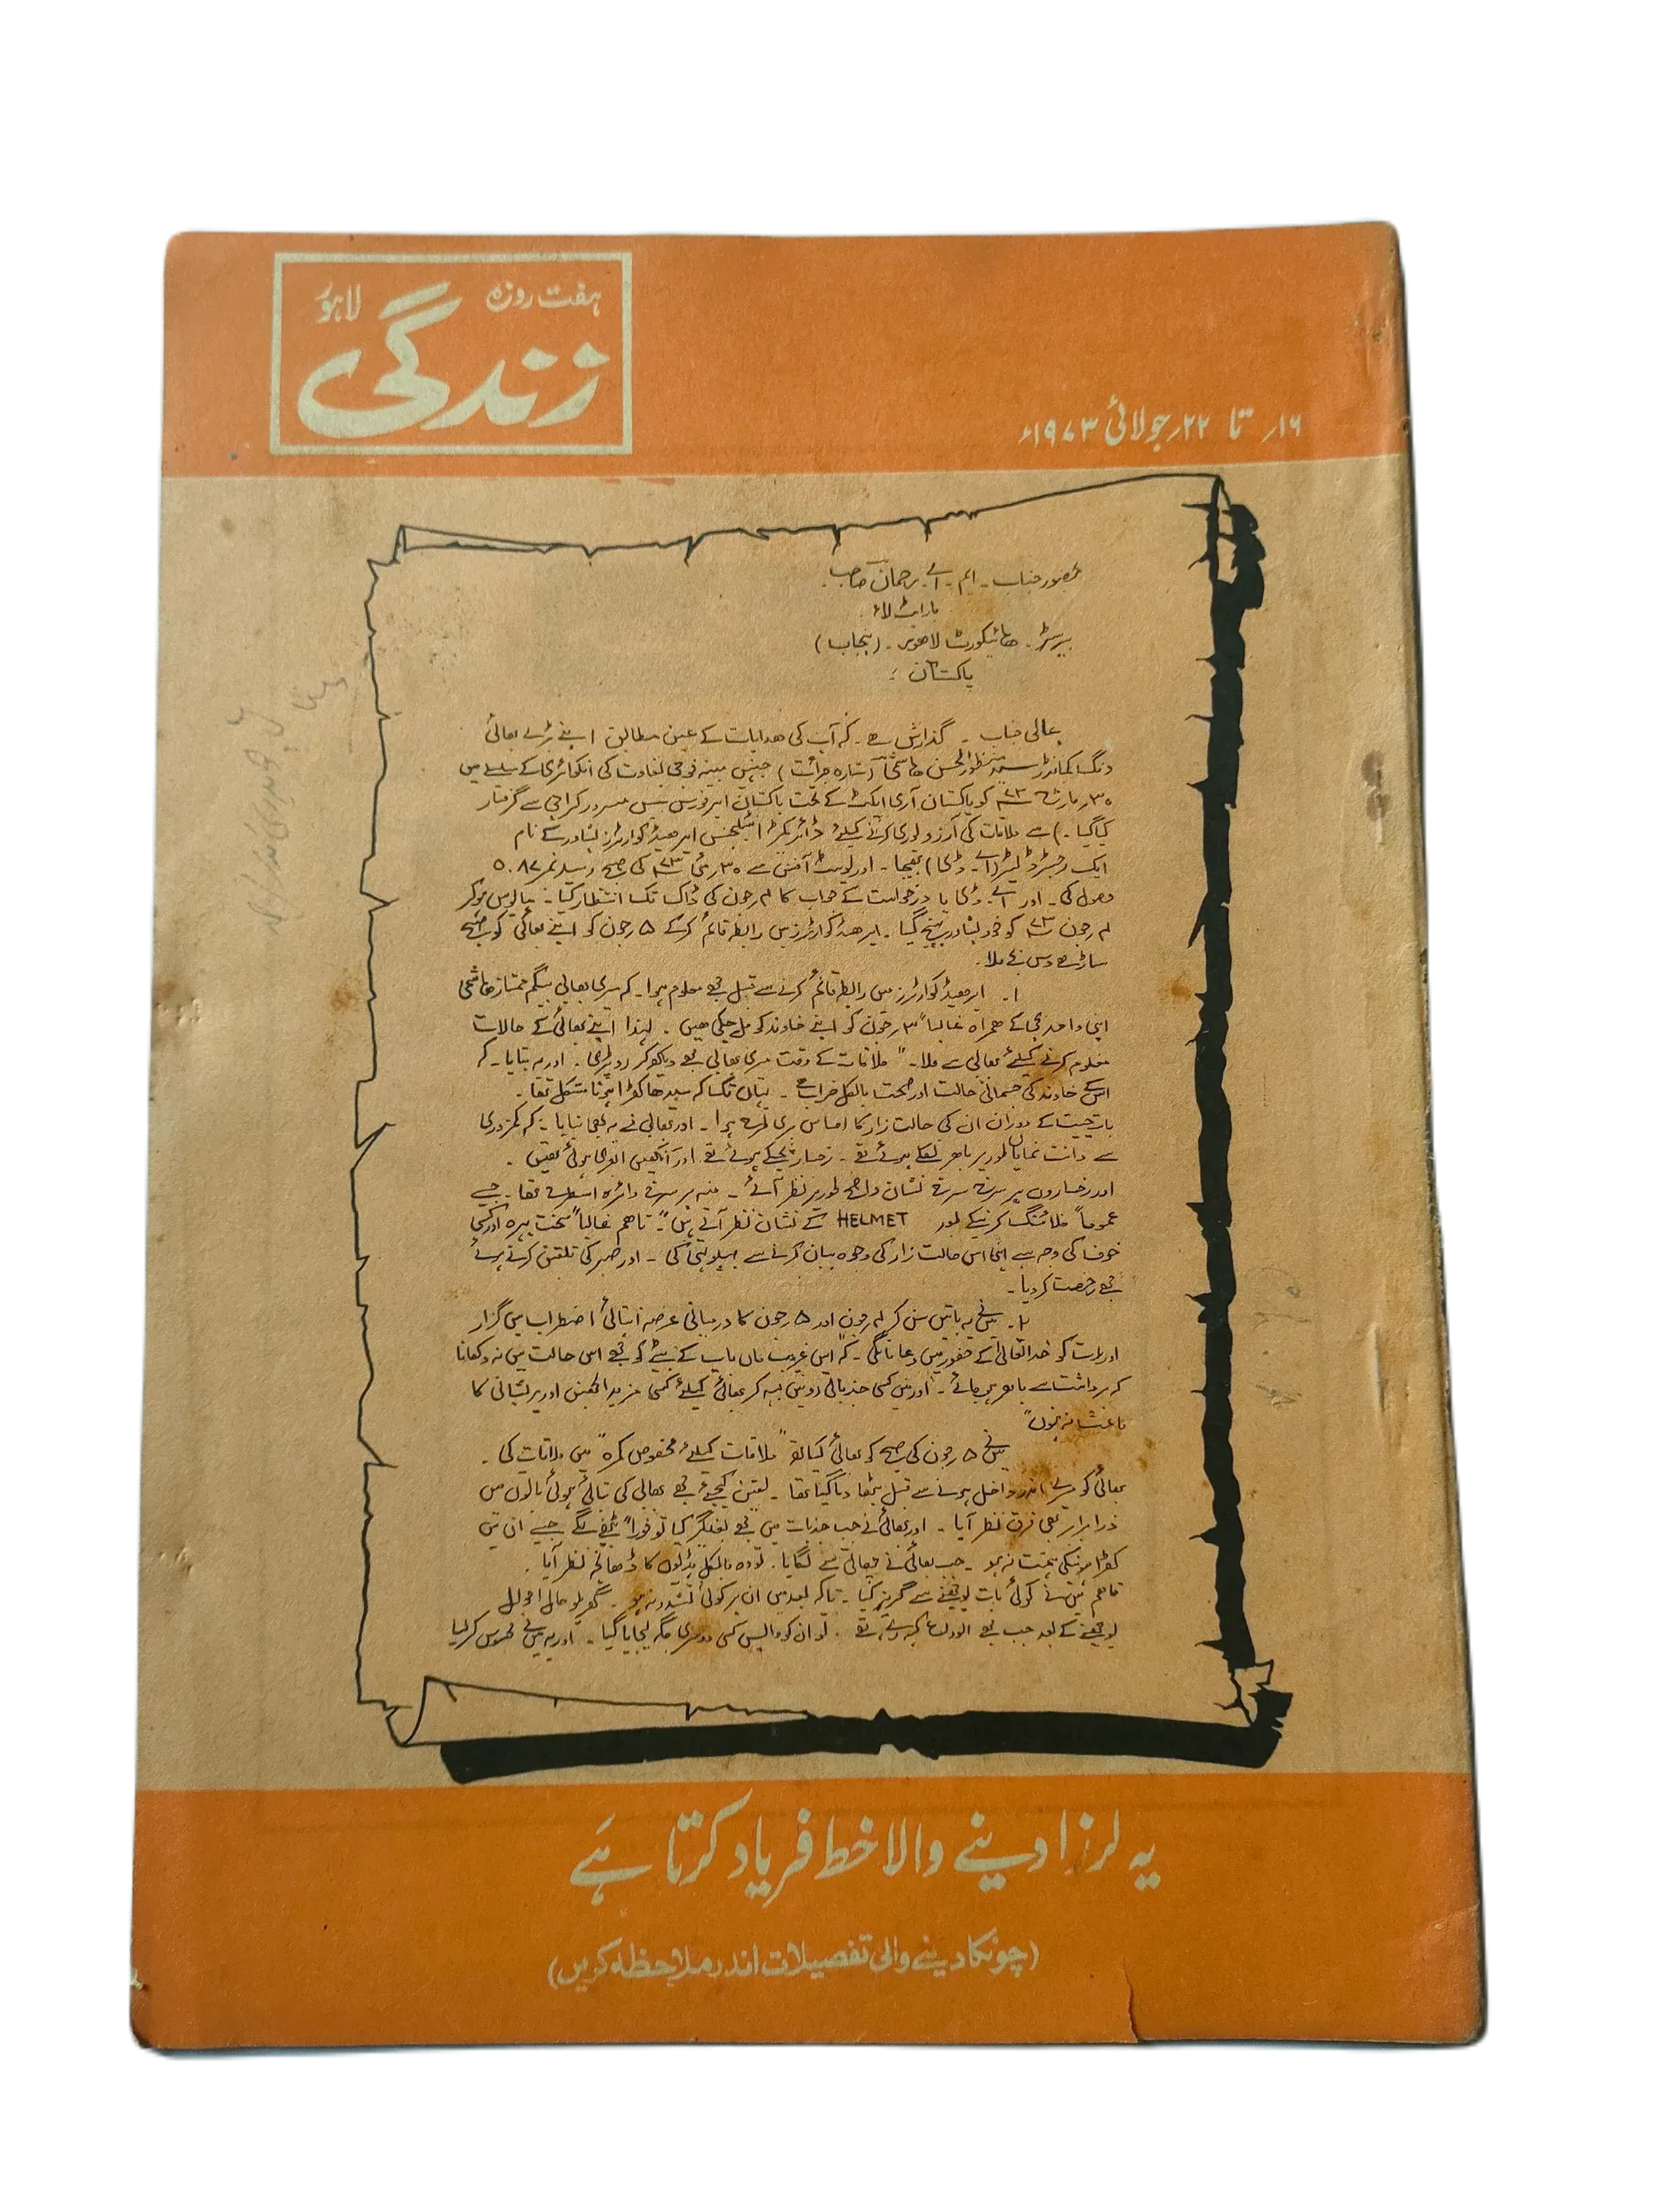 ہفت روزہ لاہور
زندگی
۱۶ر تا ۲۲ر جولائی ۱۹۷۳ء
بحضور جناب ۔ ایم ۔ اے ۔ رحمان صاحب ۔
بار ایٹ لاء ۔
بیرسٹر ۔ ھائیکورٹ لاھور ۔ (پنجاب)
پاکستان ؛
عالی جناب ۔ گذارش ہے ۔ کہ آپ کی ھدایات کے عین مطابق اپنے بڑے بھائی
ونگ کمانڈر سید منظور الحسن ھاشمی (ستارہ جرائت) جنہیں مبینہ فوجی بغاوت کی انکوائری کے سلسلے میں
۳۰ر مارچ ۷۳ء کو پاکستان آرمی ایکٹ کے تحت پاکستان ایرفورس بیس مسرور کراچی سے گرفتار
کیا گیا ۔) سے ملاقات کی آرزو پوری کرنے کیلئے ڈائریکٹر انٹیلجنس ایر ھیڈکوارٹرز پشاور کے نام
ایک رجسٹرڈ لیٹر (اے ۔ ڈی) بھیجا ۔ اور پوسٹ آفس سے ۳۰ر مئی ۷۳ء کی صبح رسید نمبر ۵۰۸۷
وصول کی ۔ اور اے ۔ ڈی یا درخواست کے جواب کا ۴ر جون کی ڈاک تک انتظار کیا ۔ مایوس ہوکر
۴ر جون ۷۳ء کو خود پشاور پہنچ گیا ۔ ایر ھیڈکوارٹرز میں رابطہ قائم کرکے ۵ر جون کو اپنے بھائی کو صبح
ساڑھے دس بجے ملا ۔
۱ ۔ ایر ھیڈکوارٹرز میں رابطہ قائم کرنے سے قبل مجھے معلوم ہوا ۔ کہ میری بھابی بیگم ممتاز ھاشمی
اپنی واحد بچی کے ھمراہ غالباً ۳ر جون کو اپنے خاوند کو مل چکی ھیں ۔ لہٰذا اپنے بھائی کے حالات
معلوم کرنے کیلئے بھابی سے ملا ۔ "ملاقات کے وقت میری بھابی مجھے دیکھ کر رو پڑی ۔ اور یہ بتایا ۔ کہ
اس کے خاوند کی جسمانی حالت اور صحت بالکل خراب ہے ۔ یہاں تک کہ سیدھا کھڑا ہونا مشکل تھا ۔
بات چیت کے دوران ان کی حالت زار کا احساس بری طرح ہوا ۔ اور بھابی نے یہ بھی بتایا ۔ کہ کمزوری
سے دانت نمایاں طور پر باھر نکلے ہوئے تھے ۔ رخسار پچکے ہوئے تھے اور آنکھیں ابھری ہوئی تھیں ۔
اور رخساروں پر سرخ سرخ نشان واضح طور پر نظر آئے ۔ منہ پر سرخ دائرہ اسطرح تھا ۔ جیسے
عموماً فلائنگ کرنیکے بعد HELMET کے نشان نظر آتے ہیں" ۔ تاھم غالباً سخت پہرہ اور کسی
خوف کی وجہ سے اپنی اس حالت زار کی وجوہ بیان کرنے سے پہلوتہی کی ۔ اور صبر کی تلقین کرتے ہوئے
مجھے رخصت کر دیا ۔
۲ ۔ میں نے یہ باتیں سن کر ۴ر جون اور ۵ر جون کا درمیانی عرصہ انتہائی اضطراب میں گزارا
اور رات کو خدا تعالیٰ کے حضور میں دعا مانگی ۔ کہ "اس غریب ماں باپ کے بیٹے کو مجھے اس حالت میں نہ دکھانا
کہ برداشت سے باھر ہی جائے ۔ اور میں کسی جذباتی رو میں بہہ کر بھائی کیلئے کسی مزید الجھن اور پریشانی کا
باعث نہ بنوں"
میں نے ۵ر جون کی صبح کو بھائی کیساتھ "ملاقات کیلئے مخصوص کمرہ" میں ملاقات کی ۔
بھائی کو میرے اندر داخل ہونے سے قبل بٹھا دیا گیا تھا ۔ یقین کیجیئے مجھے بھابی کی بتائی ہوئی باتوں میں
ذرا برابر بھی فرق نظر آیا ۔ اور بھائی نے جب جذبات میں مجھے بغلگیر کیا تو فوراً بیٹھنے لگے جیسے ان میں
کھڑا ہونیکی ہمت نہ ہو ۔ جب بھائی نے چھاتی سے لگایا ۔ تو وہ بالکل ہڈیوں کا ڈھانچہ نظر آیا ۔
تاھم میں نے کوئی بات پوچھنے سے گریز کیا ۔ تاکہ بعد میں ان پر کوئی تشدد نہ ہو ۔ گھریلو حال احوال
پوچھنے کے بعد جب مجھے الوداع کہہ رہے تھے ۔ تو ان کو واپس کسی دوسری جگہ لیجایا گیا ۔ اور یہ میں نے محسوس کر لیا
یہ لرزا دینے والا خط فریاد کرتا ہے
(چونکا دینے والی تفصیلات اندر ملاحظہ کریں)